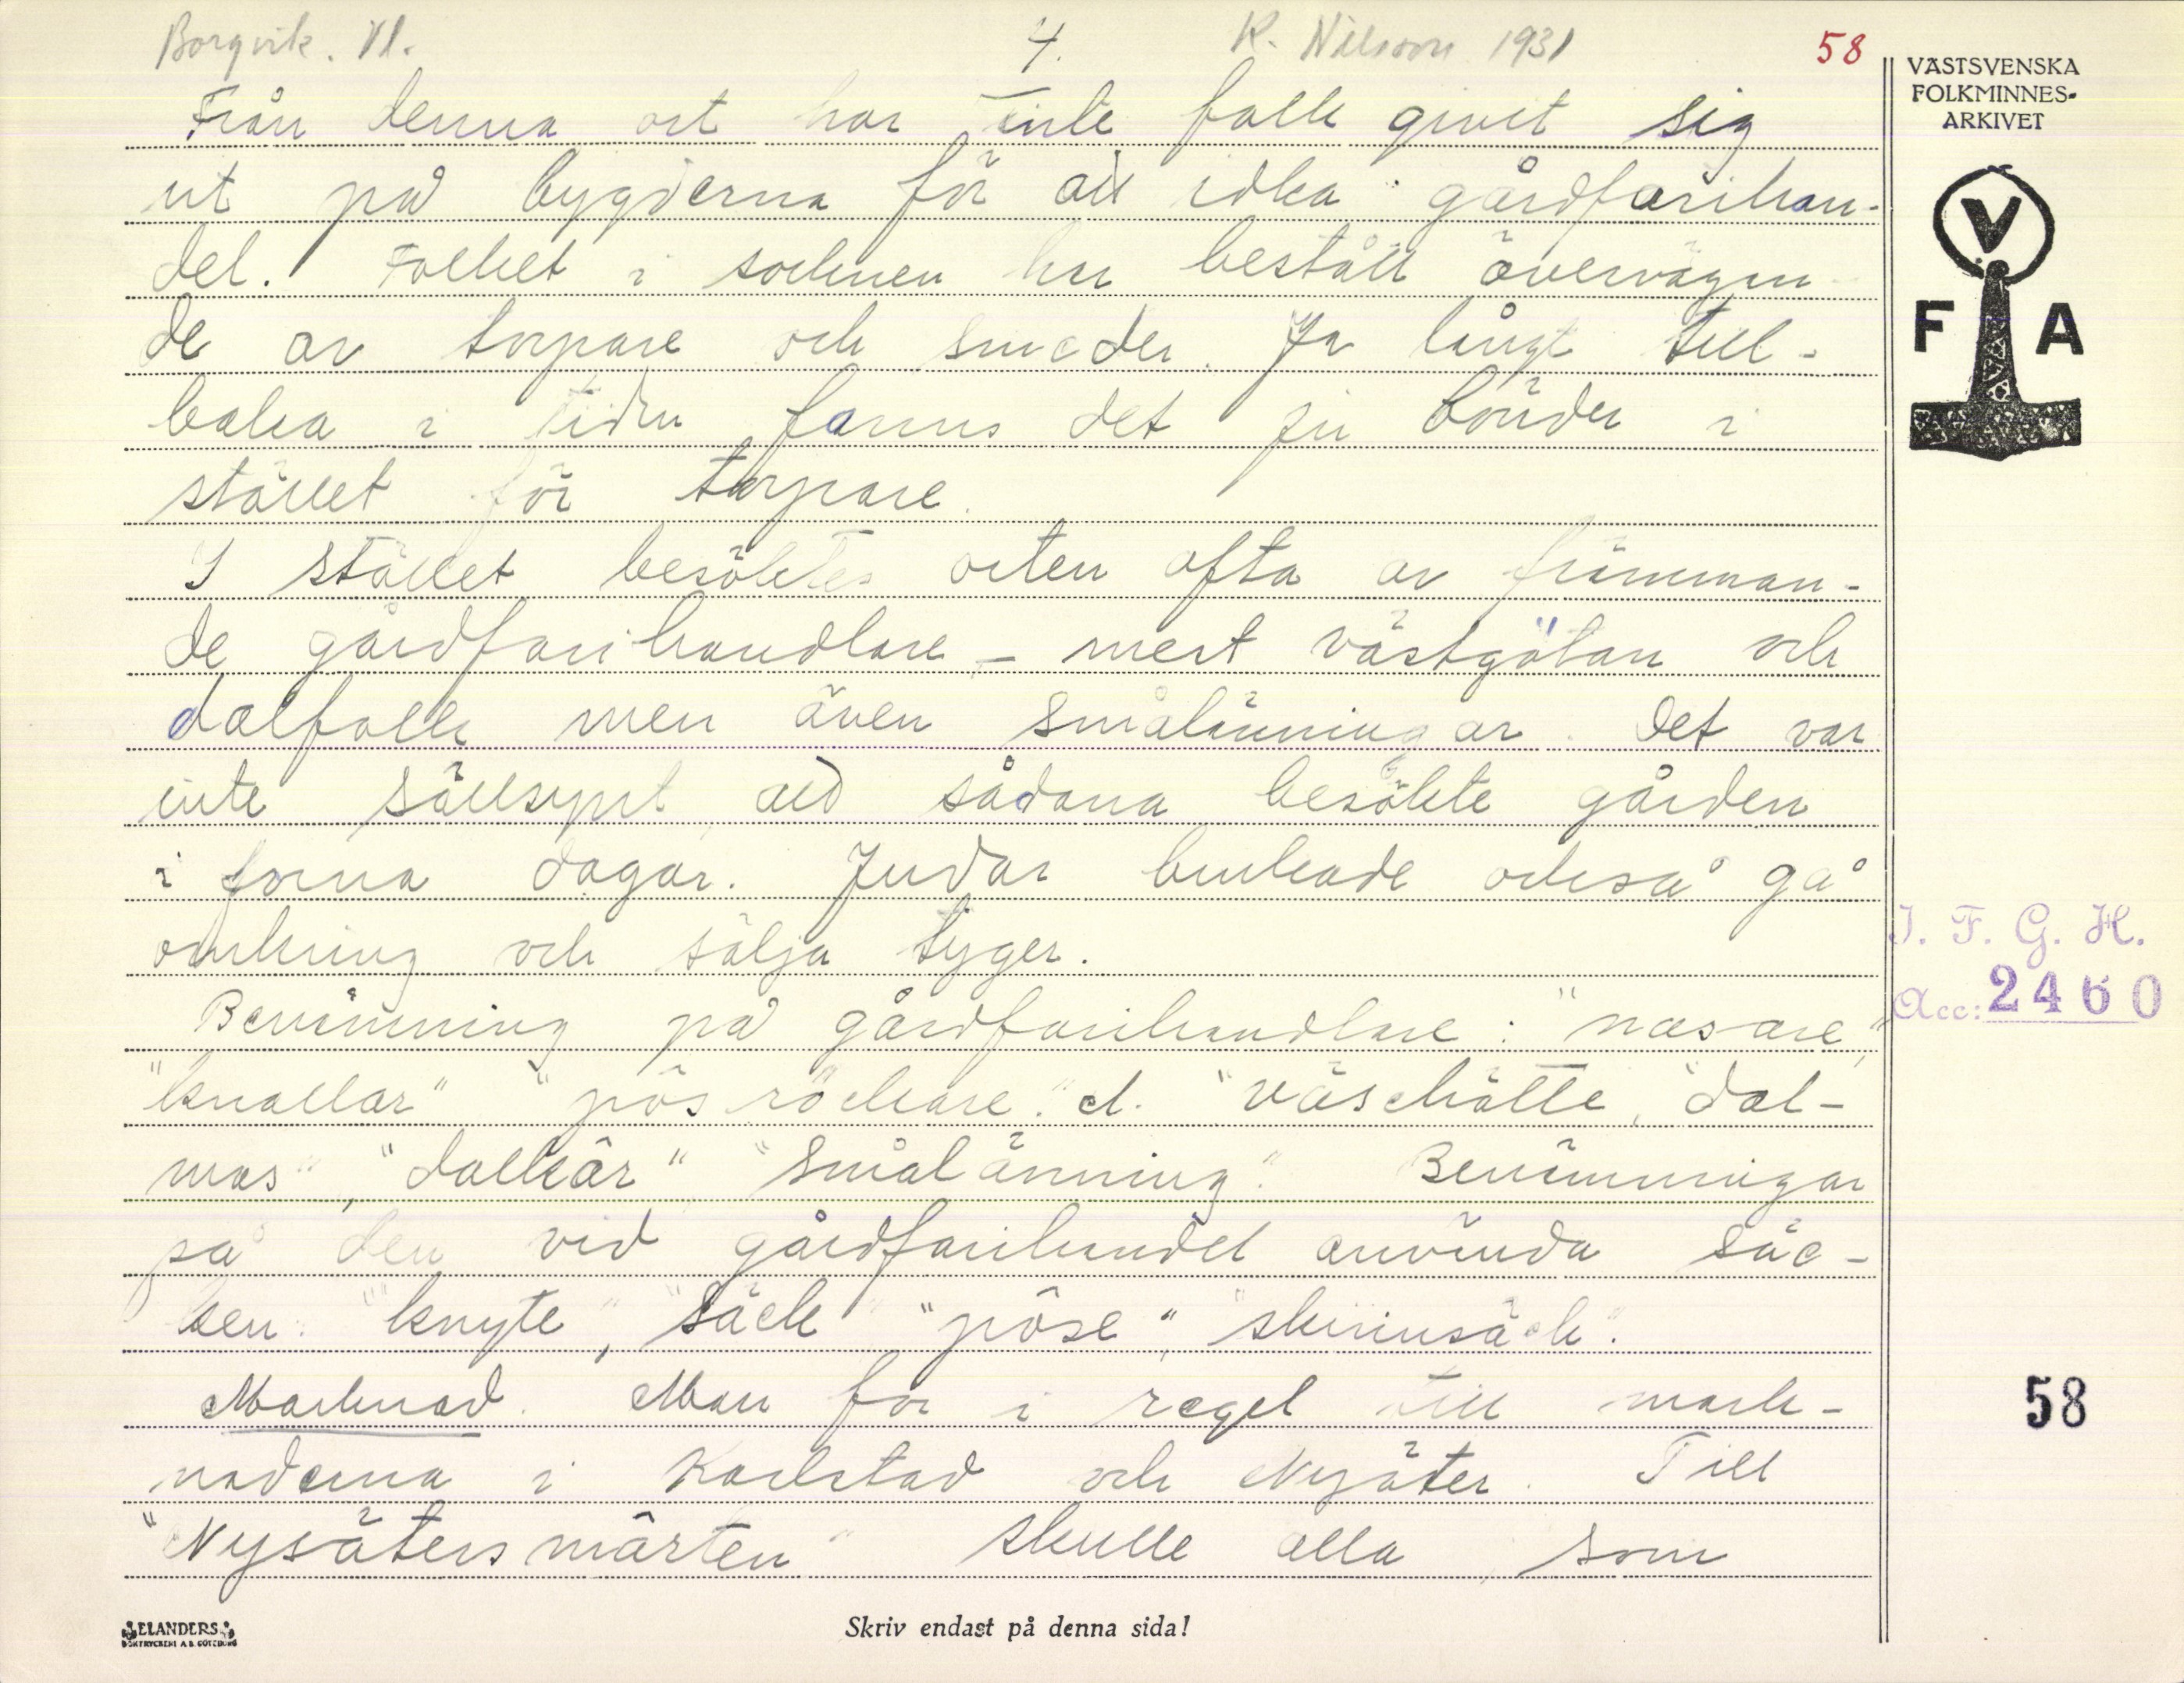 Borgvik. Vl. 4. K. Nilsson 1931 58
Från denna ort har inte folk givit sig
ut på bygderna för att idka gårdfarihan-
del. Folket i socknen har bestått övervägan-
de av torpare och smeder. Ja långt till-
baka i tiden fanns det ju bönder i
stället för torpare.
I stället besöktes orten ofta av främman-
de gårdfarihandlare – mest västgötar och
dalfolk men även smålänningar. Det var
inte sällsynt att sådana besökte gården
i forna dagar. Judar brukade också gå
omkring och sälja tyger.
Benämning på gårdfarihandlare: "nasare",
"knallar" "pôsröckare" el. "väschötte, "dal-
mas", "dalkär" "Smålänning". Benämningar
på den vid gårdfarihandel använda säc-
ken: "knyte", "säck" "pôse", "skinnsäck".
Marknad. Man for i regel till mark-
naderna i Karlstad och Nysäter. Till
"Nysäters mârten" skulle alla, som
VÄSTSVENSKA
FOLKMINNES-
ARKIVET
V
F A
I. F. G. H.
Acc: 2460
58
ELANDERS
BOKTRYCKERI A.B. GÖTEBORG
Skriv endast på denna sida!